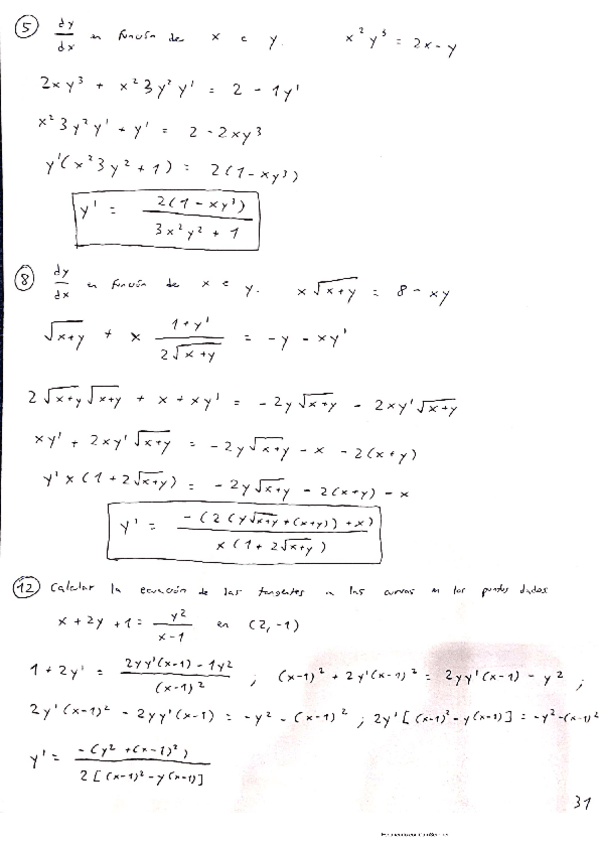 ⑤ dy/dx en función de x e y. x² y³ = 2x - y
2xy³ + x² 3y² y' = 2 - 1y'
x² 3y² y' + y' = 2 - 2xy³
y'(x² 3y² + 1) = 2(1 - xy³)
y' = 2(1 - xy³) / (3x² y² + 1)
⑧ dy/dx en función de x e y. x√(x+y) = 8 - xy
√(x+y) + x (1 + y')/(2√(x+y)) = -y - xy'
2√(x+y)√(x+y) + x + xy' = -2y√(x+y) - 2xy'√(x+y)
xy' + 2xy'√(x+y) = -2y√(x+y) - x - 2(x+y)
y' x (1 + 2√(x+y)) = -2y√(x+y) - 2(x+y) - x
y' = -(2(y√(x+y) + (x+y)) + x) / x(1 + 2√(x+y))
⑫ Calcular la ecuación de las tangentes a las curvas en los puntos dados
x + 2y + 1 = y²/(x-1) en (2, -1)
1 + 2y' = (2yy'(x-1) - 1y²)/(x-1)² ; (x-1)² + 2y'(x-1)² = 2yy'(x-1) - y² ;
2y'(x-1)² - 2yy'(x-1) = -y² - (x-1)² ; 2y'[(x-1)² - y(x-1)] = -y² - (x-1)²
y' = -(y² + (x-1)²) / 2[(x-1)² - y(x-1)]
31